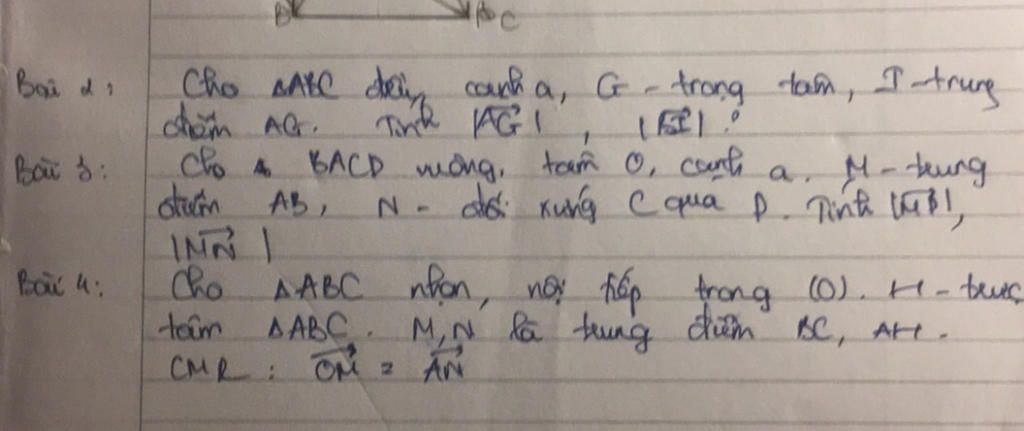 B C
Bài 2: Cho ΔABC đều, cạnh a, G - trọng tâm, I - trung
điểm AG. Tính |AG|, |BI|?
Bài 3: Cho BACD vuông, tâm O, cạnh a. M - trung
điểm AB, N - đối xứng C qua D. Tính |MD|,
|MN|
Bài 4: Cho ΔABC nhọn, nội tiếp trong (O). H - trực
tâm ΔABC. M, N là trung điểm BC, AH.
CMR: OM = AN